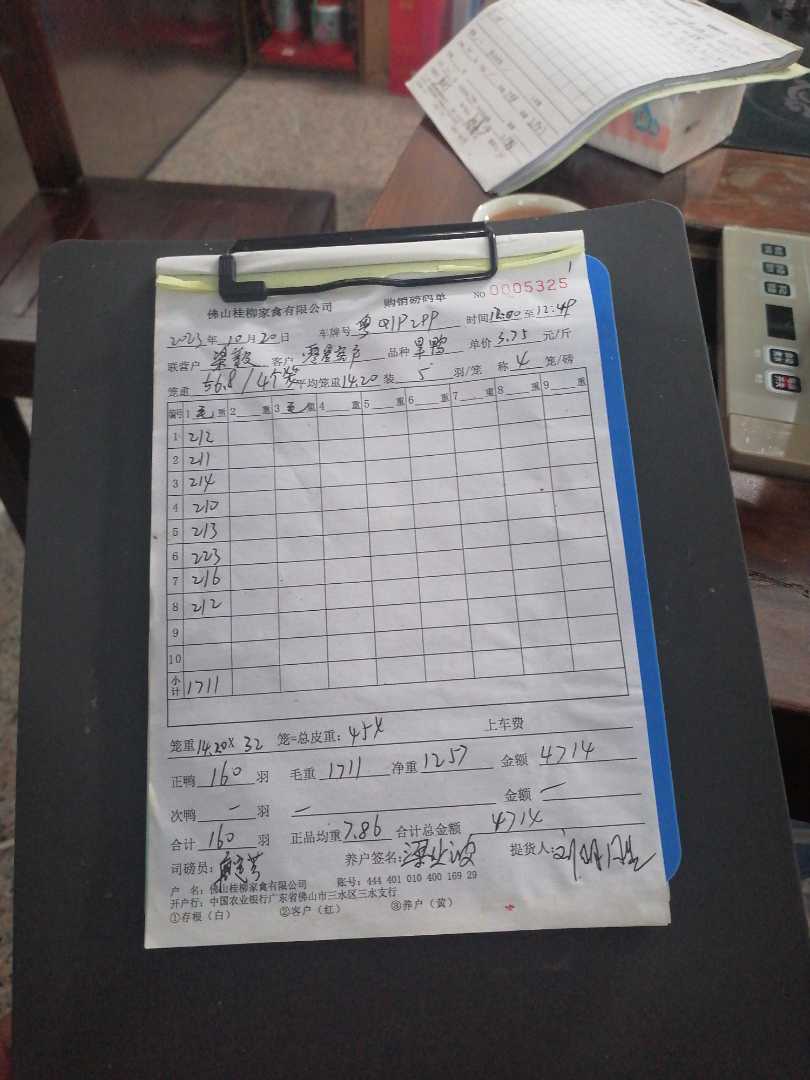 1
佛山桂柳家食有限公司 购销磅码单 NO 0005325
2023年10月20日 车牌号 粤 时间12:00至12:49
联营户 客户 零星客户 品种 单价 3.75 元/斤
笼重 56.8/4个笼 平均笼重14.20 装 5 羽/笼 称 4 笼/磅
编号 1 毛 重 2 重 3 毛 重 4 重 5 重 6 重 7 重 8 重 9 重
1 212
2 211
3 214
4 210
5 213
6 223
7 216
8 212
9
10
小计 1711
笼重 14.20× 32 笼=总皮重: 454 上车费
正鸭 160 羽 毛重 1711 净重 1257 金额 4714
次鸭 — 羽 — 金额 —
合计 160 羽 正品均重 7.86 合计总金额 4714
司磅员: 养户签名: 提货人:
户 名: 佛山桂柳家食有限公司 账号: 444 401 010 400 169 29
开户行: 中国农业银行广东省佛山市三水区三水支行
①存根(白) ②客户(红) ③养户(黄)